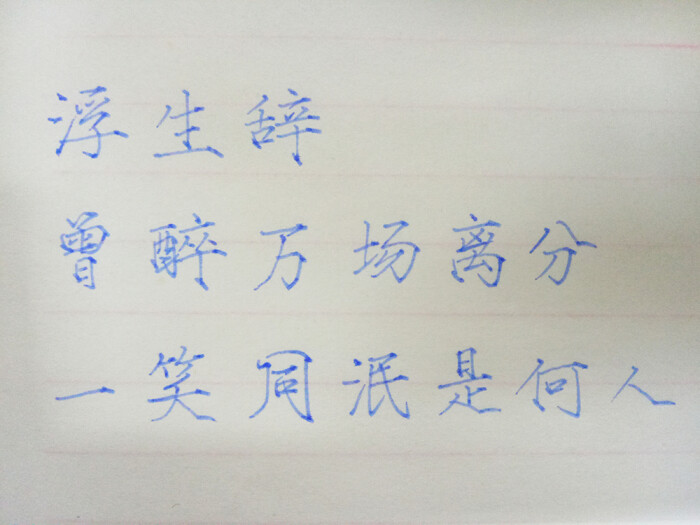 浮生辞
曾醉万场离分
一笑同泯是何人